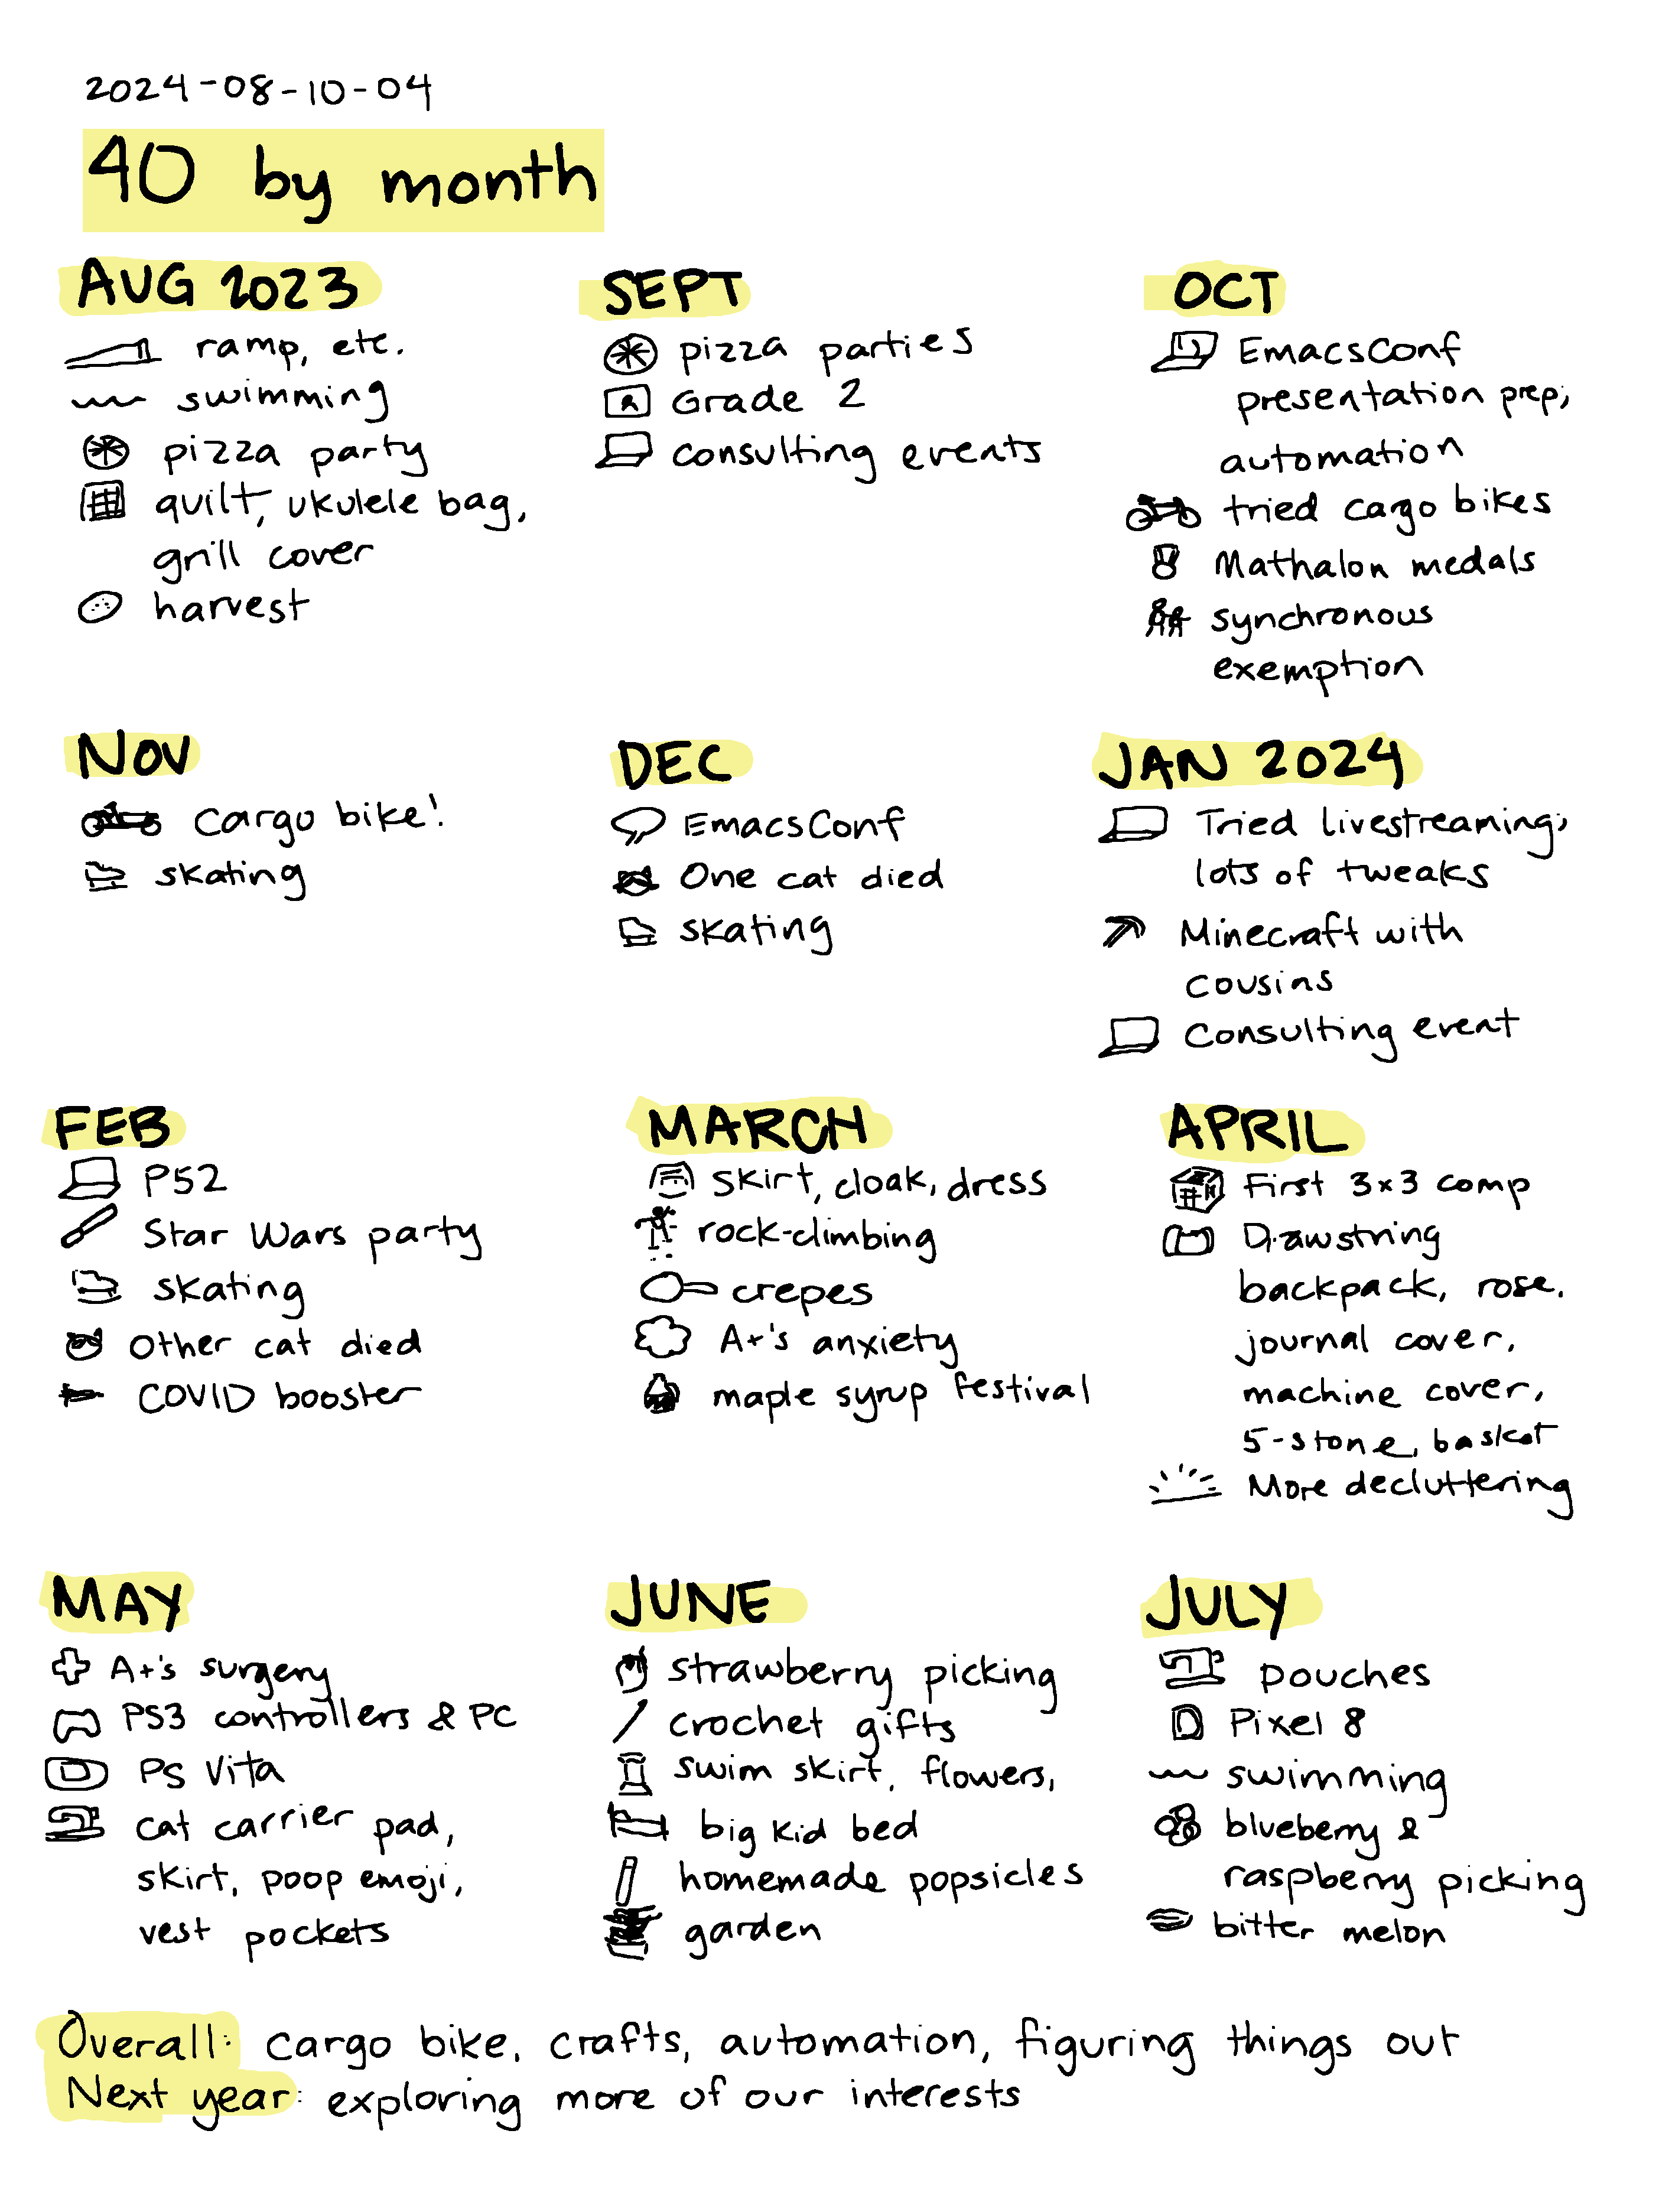 2024-08-10-04
40 by month
AUG 2023
ramp, etc.
swimming
pizza party
quilt, ukulele bag,
grill cover
harvest
SEPT
pizza parties
Grade 2
consulting events
OCT
EmacsConf
presentation prep;
automation
tried cargo bikes
Mathalon medals
synchronous
exemption
NOV
cargo bike!
skating
DEC
EmacsConf
One cat died
skating
JAN 2024
Tried livestreaming;
lots of tweaks
Minecraft with
cousins
Consulting event
FEB
P52
Star Wars party
skating
Other cat died
COVID booster
MARCH
Skirt, cloak, dress
rock-climbing
crepes
A+'s anxiety
maple syrup festival
APRIL
First 3x3 comp
Drawstring
backpack, rose,
journal cover,
machine cover,
5-stone, basket
More decluttering
MAY
A+'s surgery
PS3 controllers & PC
PS Vita
cat carrier pad,
skirt, poop emoji,
vest pockets
JUNE
strawberry picking
crochet gifts
swim skirt, flowers,
big kid bed
homemade popsicles
garden
JULY
pouches
Pixel 8
swimming
blueberry &
raspberry picking
bitter melon
Overall: cargo bike, crafts, automation, figuring things out
Next year: exploring more of our interests